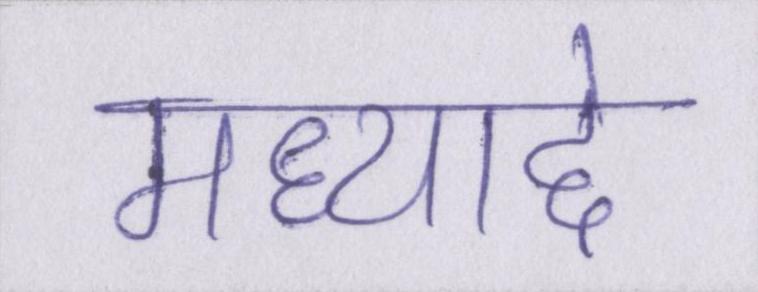 मध्यादे